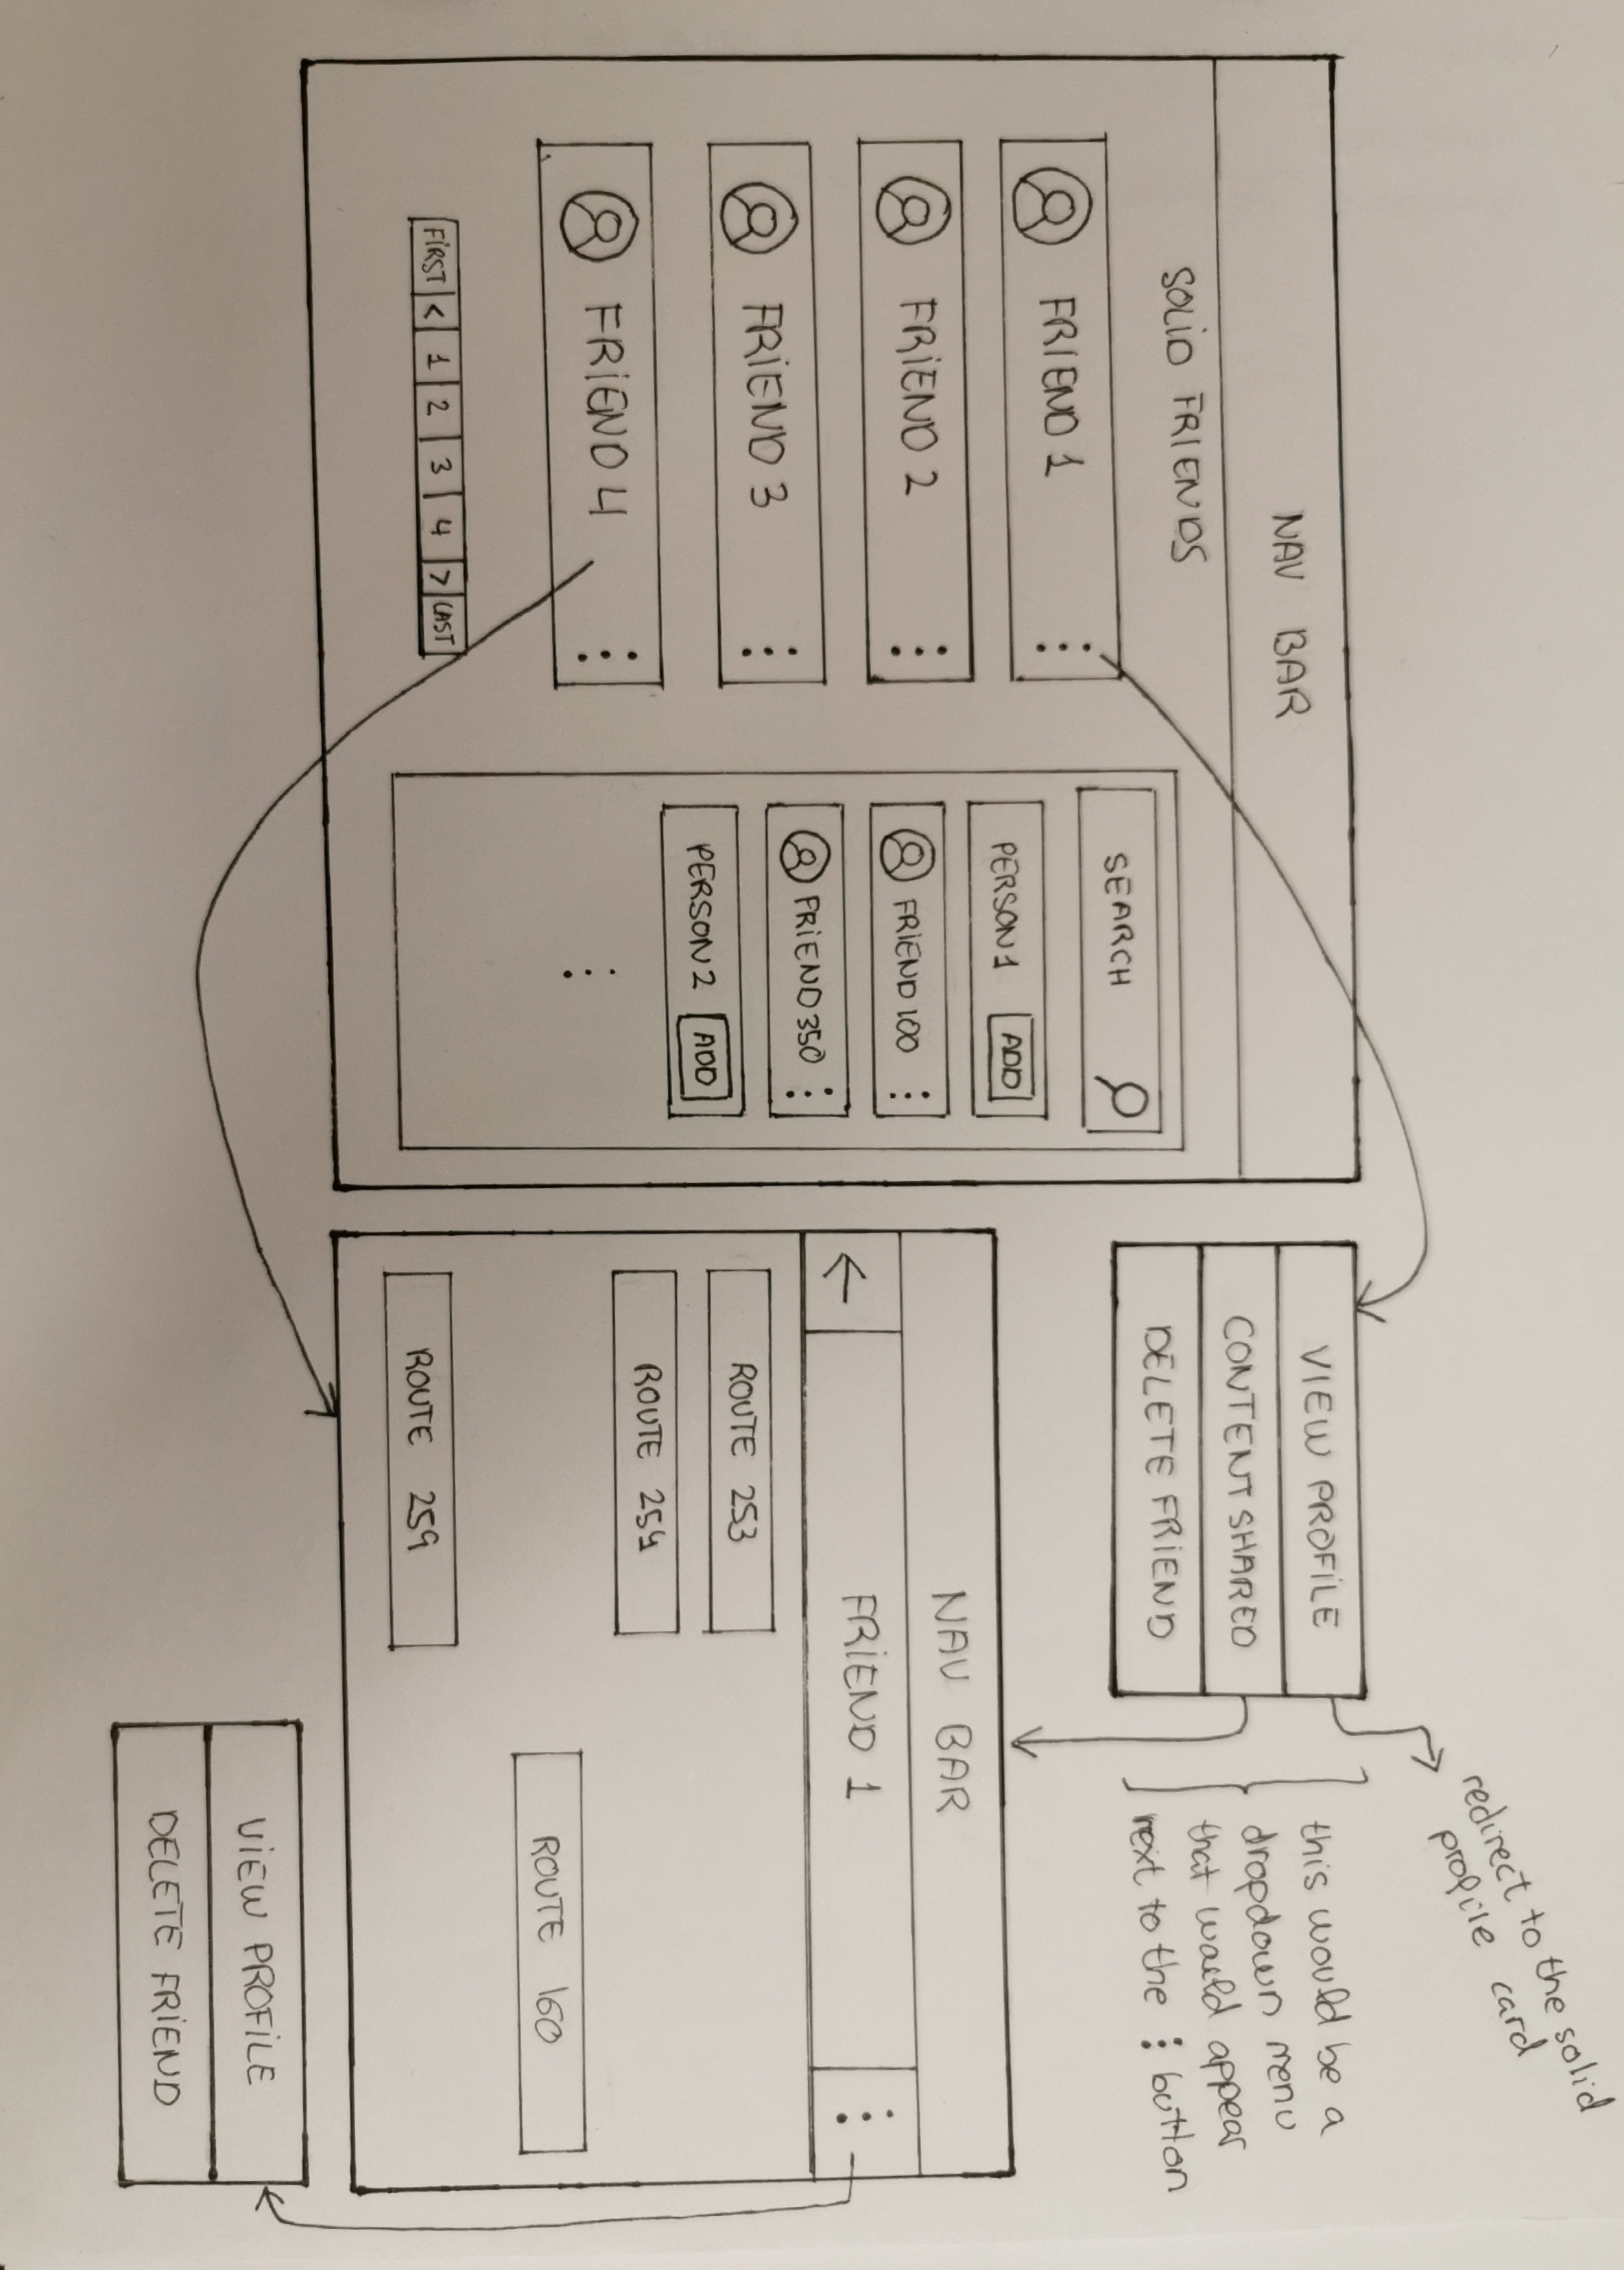 redirect to the solid
profile card
NAV BAR
SOLID FRIENDS
FRIEND 1
FRIEND 2
FRIEND 3
FRIEND 4
FIRST < 1 2 3 4 > LAST
SEARCH
PERSON 1 ADD
FRIEND 100
FRIEND 350
PERSON 2 ADD
VIEW PROFILE
CONTENT SHARED
DELETE FRIEND
this would be a
dropdown menu
that would appear
next to the ⋮ button
NAV BAR
← FRIEND 1
ROUTE 253
ROUTE 254
ROUTE 160
ROUTE 259
VIEW PROFILE
DELETE FRIEND